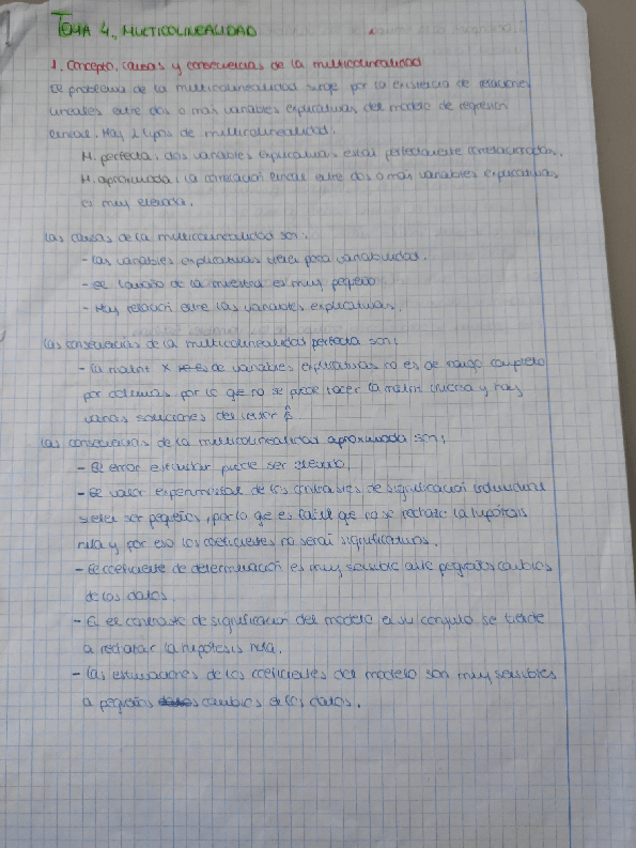 TEMA 4. MULTICOLINEALIDAD
1. Concepto, causas y consecuencias de la multicolinealidad
El problema de la multicolinealidad surge por la existencia de relaciones
lineales entre dos o más variables explicativas del modelo de regresión
lineal. Hay 2 tipos de multicolinealidad.
M. perfecta: dos variables explicativas están perfectamente correlacionadas.
M. aproximada: la correlación lineal entre dos o más variables explicativas
es muy elevada.
Las causas de la multicolinealidad son:
- Las variables explicativas tienen poca variabilidad.
- El tamaño de la muestra es muy pequeño
- Hay relación entre las variables explicativas.
Las consecuencias de la multicolinealidad perfecta son:
- La matriz X de variables explicativas no es de rango completo
por columnas, por lo que no se puede hacer la matriz inversa y hay
varias soluciones del vector β̂
Las consecuencias de la multicolinealidad aproximada son:
- El error estándar puede ser elevado.
- El valor experimental de los contrastes de significación individual
suelen ser pequeños, por lo que es fácil que no se rechace la hipótesis
nula y por eso los coeficientes no serán significativos.
- El coeficiente de determinación es muy sensible ante pequeños cambios
de los datos.
- En el contraste de significación del modelo en su conjunto se tiende
a rechazar la hipótesis nula.
- Las estimaciones de los coeficientes del modelo son muy sensibles
a pequeños cambios de los datos.